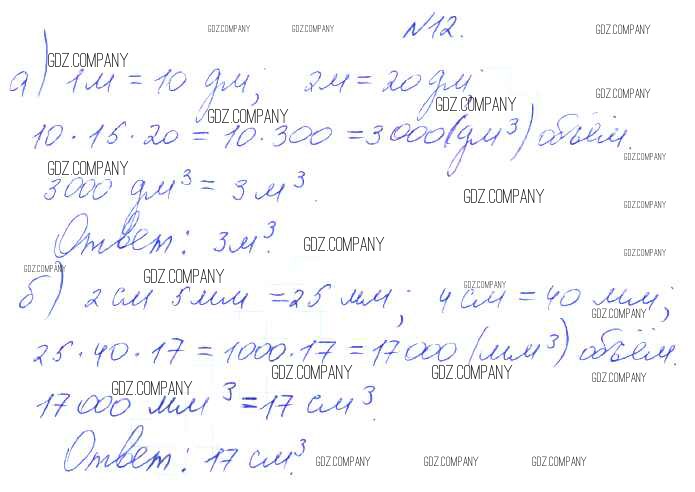 GDZ.COMPANY GDZ.COMPANY N12. GDZ.COMPANY
GDZ.COMPANY
а) 1м = 10 дм; 2м = 20 дм;
GDZ.COMPANY
GDZ.COMPANY GDZ.COMPANY
10 · 15 · 20 = 10 · 300 = 3000 (дм³) объём.
GDZ.COMPANY
GDZ.COMPANY
3000 дм³ = 3 м³.
GDZ.COMPANY GDZ.COMPANY
Ответ: 3м³.
GDZ.COMPANY GDZ.COMPANY
GDZ.COMPANY GDZ.COMPANY GDZ.COMPANY
б) 2 см 5 мм = 25 мм; 4 см = 40 мм;
GDZ.COMPANY
25 · 40 · 17 = 1000 · 17 = 17 000 (мм³) объём.
GDZ.COMPANY GDZ.COMPANY GDZ.COMPANY GDZ.COMPANY
17 000 мм³ = 17 см³.
Ответ: 17 см³.
GDZ.COMPANY GDZ.COMPANY GDZ.COMPANY